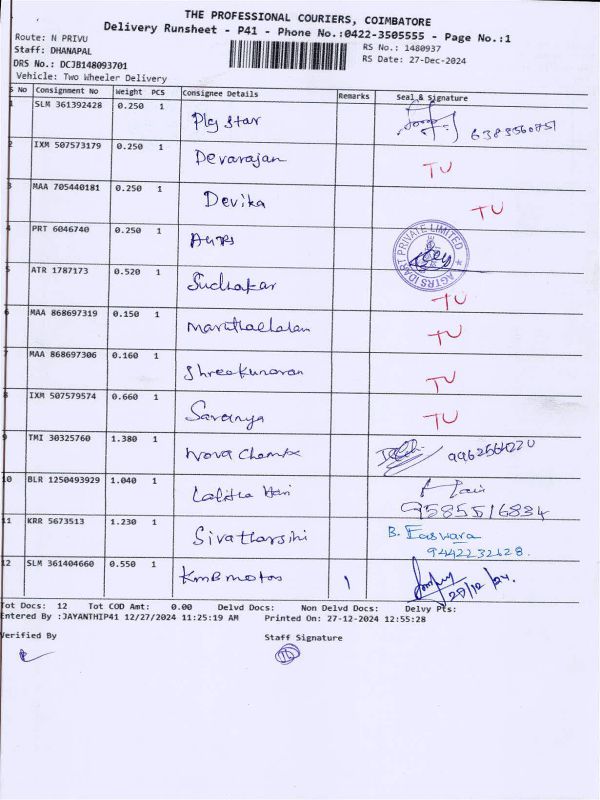 THE PROFESSIONAL COURIERS, COIMBATORE
Delivery Runsheet - P41 - Phone No.:0422-3505555 - Page No.:1
Route: N PRIVU
RS No.: 1480937
Staff: DHANAPAL
RS Date: 27-Dec-2024
DRS No.: DCJB148093701
Vehicle: Two Wheeler Delivery
S No Consignment No Weight PCS Consignee Details Remarks Seal & Signature
1 SLM 361392428 0.250 1 Plg Star 6383560751
2 IXM 507573179 0.250 1 Devarajan TU
3 MAA 705440181 0.250 1 Devika TU
4 PRT 6046740 0.250 1 AGTRS IDART PRIVATE LIMITED
5 ATR 1787173 0.520 1 Sudhakar TU
6 MAA 868697319 0.150 1 TU
7 MAA 868697306 0.160 1 TU
8 IXM 507579574 0.660 1 Saranya TU
9 TMI 30325760 1.380 1 Nova
10 BLR 1250493929 1.040 1 Lalitha Hari Hari
9585516834
11 KRR 5673513 1.230 1 Sivatharsini B. Easwara
9442232628.
12 SLM 361404660 0.550 1 KMB motors 1 27/12/24.
Tot Docs: 12 Tot COD Amt: 0.00 Delvd Docs: Non Delvd Docs: Delvy Pts:
Entered By :JAYANTHIP41 12/27/2024 11:25:19 AM Printed On: 27-12-2024 12:55:28
Verified By Staff Signature